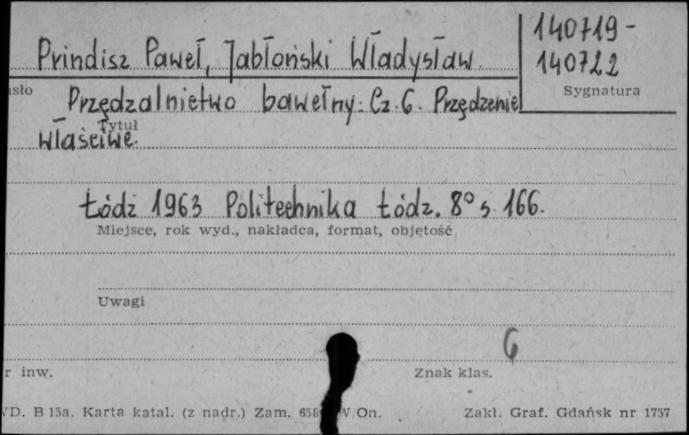 140719-
Prindisz Paweł, Jabłoński Władysław
140722
Sygnatura
Przędzalnictwo bawełny: Cz. 6. Przędzenie
Tytuł
właściwe.
Łódź 1963 Politechnika Łódz. 8° s. 166.
Miejsce, rok wyd., nakładca, format, objętość
Uwagi
6
r inw.
Znak klas.
B 15a. Karta katal. (z nadr.) Zam. V/On.
Zakł. Graf. Gdańsk nr 1757